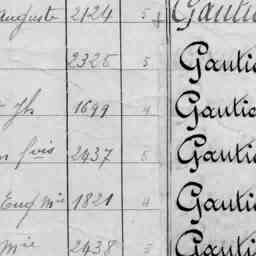 auguste 2124 5 Gautie
2325 5 Gautie
Jh 1699 4 Gautie
fois 2437 5 Gautie
Eug Mie 1821 4 Gautie
Mie 2438 5 Gautie